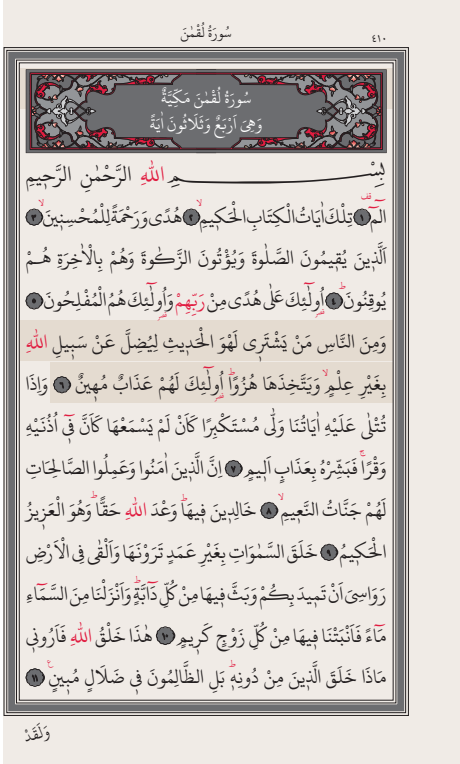 سُورَةُ لُقْمٰنَ
٤١٠
سُورَةُ لُقْمٰنَ مَكِّيَّةٌ
وَهِىَ اَرْبَعٌ وَثَلَاثُونَ اٰيَةً
بِسْمِ اللهِ الرَّحْمٰنِ الرَّحِيمِ
الٓمٓ ﴿١﴾ تِلْكَ اٰيَاتُ الْكِتَابِ الْحَكِيمِۙ ﴿٢﴾ هُدًى وَرَحْمَةً لِلْمُحْسِنِينَۙ ﴿٣﴾
اَلَّذِينَ يُقِيمُونَ الصَّلٰوةَ وَيُؤْتُونَ الزَّكٰوةَ وَهُمْ بِالْاٰخِرَةِ هُمْ
يُوقِنُونَۜ ﴿٤﴾ اُو۬لٰٓئِكَ عَلٰى هُدًى مِنْ رَبِّهِمْ وَاُو۬لٰٓئِكَ هُمُ الْمُفْلِحُونَ ﴿٥﴾
وَمِنَ النَّاسِ مَنْ يَشْتَرِى لَهْوَ الْحَدِيثِ لِيُضِلَّ عَنْ سَبِيلِ اللهِ
بِغَيْرِ عِلْمٍۙ وَيَتَّخِذَهَا هُزُوًاۜ اُو۬لٰٓئِكَ لَهُمْ عَذَابٌ مُهِينٌ ﴿٦﴾ وَاِذَا
تُتْلٰى عَلَيْهِ اٰيَاتُنَا وَلّٰى مُسْتَكْبِرًا كَاَنْ لَمْ يَسْمَعْهَا كَاَنَّ فِٓى اُذُنَيْهِ
وَقْرًاۚ فَبَشِّرْهُ بِعَذَابٍ اَلِيمٍ ﴿٧﴾ اِنَّ الَّذِينَ اٰمَنُوا وَعَمِلُوا الصَّالِحَاتِ
لَهُمْ جَنَّاتُ النَّعِيمِۙ ﴿٨﴾ خَالِدِينَ فِيهَاۜ وَعْدَ اللهِ حَقًّاۜ وَهُوَ الْعَزِيزُ
الْحَكِيمُ ﴿٩﴾ خَلَقَ السَّمٰوَاتِ بِغَيْرِ عَمَدٍ تَرَوْنَهَا وَاَلْقٰى فِى الْاَرْضِ
رَوَاسِىَ اَنْ تَمِيدَ بِكُمْ وَبَثَّ فِيهَا مِنْ كُلِّ دَٓابَّةٍۜ وَاَنْزَلْنَا مِنَ السَّمَٓاءِ
مَٓاءً فَاَنْبَتْنَا فِيهَا مِنْ كُلِّ زَوْجٍ كَرِيمٍ ﴿١٠﴾ هٰذَا خَلْقُ اللهِ فَاَرُونِى
مَاذَا خَلَقَ الَّذِينَ مِنْ دُونِهِۜ بَلِ الظَّالِمُونَ فِى ضَلَالٍ مُبِينٍ۟ ﴿١١﴾
وَلَقَدْ